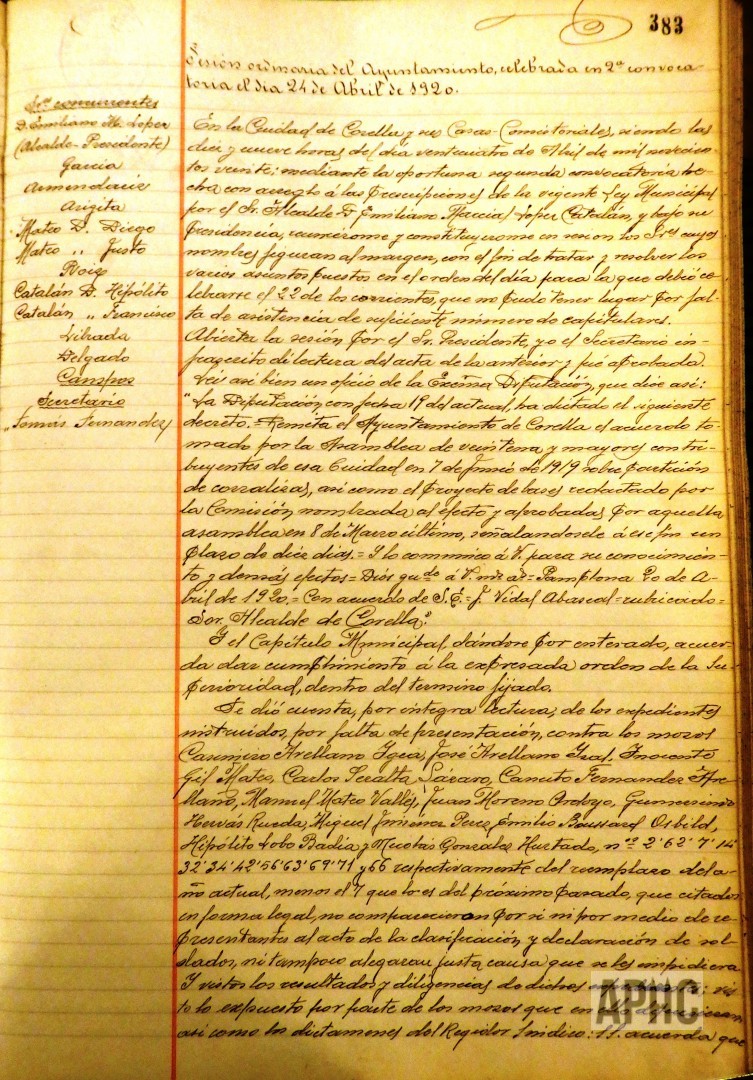 383
Sesión ordinaria del Ayuntamiento, celebrada en 2ª convoca-
toria el día 24 de Abril de 1920.
Sres concurrentes
D. Emiliano M. López
(Alcalde-Presidente)
García
Armendáriz
Arigita
Mateo D. Diego
Mateo „ Justo
Roig
Catalán D. Hipólito
Catalán „ Francisco
Librada
Delgado
Campos
Secretario
„Tomás Fernández
En la Ciudad de Corella y sus Casas-Consistoriales, siendo las
diez y nueve horas del día venticuatro de Abril de mil novecien-
tos veinte; mediante la oportuna segunda convocatoria he-
cha con arreglo á las prescripciones de la vigente Ley Municipal
por el Sr. Alcalde D. Emiliano López Catalán, y bajo su
presidencia, reuniéronse y constituyéronse en sesión los Sres cuyos
nombres figuran al margen, con el fin de tratar y resolver los
varios asuntos puestos en el orden del día para la que debió ce-
lebrarse el 22 de los corrientes, que no pudo tener lugar por fal-
ta de asistencia de suficiente número de capitulares.
Abierta la sesión por el Sr. Presidente, yo el Secretario in-
frascrito di lectura del acta de la anterior y fué aprobada.
Leí asi bien un oficio de la Excma Diputación, que dice así:
"La Diputación, con fecha 19 del actual, ha dictado el siguiente
decreto. = Remita el Ayuntamiento de Corella el acuerdo to-
mado por la Asamblea de veintena y mayores contri-
buyentes de esa Ciudad en 7 de Junio de 1919 sobre partición
de corralizas, así como el proyecto de bases redactado por
la Comisión nombrada al efecto y aprobadas por aquella
asamblea en 8 de Marzo último, señalandosele á ese fin un
plazo de diez dias. = Y lo comunico á V. para su conocimien-
to y demás efectos = Dios gude á V. ms as = Pamplona 20 de A-
bril de 1920. = Con acuerdo de S.E. = J. Vidal Abascal = rubricado =
Sor. Alcalde de Corella."
Y el Capítulo Municipal, dándose por enterado, acuer-
da dar cumplimiento á la expresada orden de la Su-
perioridad, dentro del termino fijado.
Se dió cuenta, por integra lectura, de los expedientes
instruidos, por falta de presentación, contra los mozos
Casimiro Arellano Igea, José Arellano Inocente
Gil Mateo, Carlos Peralta Lázaro, Canuto Fernandez Are-
llano, Manuel Mateo Vallés, Juan Moreno Ordoyo, Gumersindo
Hervás Rueda, Miguel Jiménez Perez, Emilio Boussard Osbild,
Hipólito Lobo Badía y Nicolás Gonzalez Hurtado, nos 2' 62' 7' 14'
32' 34' 42' 56' 63' 69' 71 y 66 respectivamente del reemplazo del a-
ño actual, menos el 7 que lo es del próximo pasado, que citados
en forma legal, no comparecieron por si ni por medio de re-
presentantes al acto de la clasificación y declaración de sol-
dados, ni tampoco alegaran justa causa que se les impidiera
Y vistos los resultados y diligencias de dichos vis-
to lo expuesto por parte de los mozos que en
así como los dictamenes del Regidor Síndico: SS. acuerda que
APHC